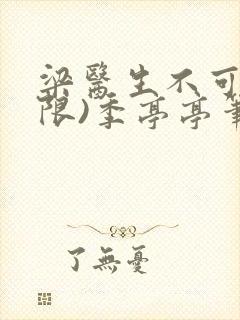 梁醫生不可
限)季亭亭筆
了無憂